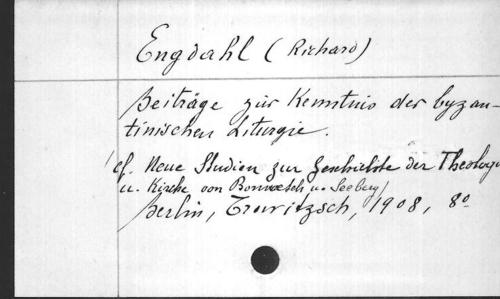 Engdahl (Richard)
Beiträge zur Kenntnis der byzan-
tinischen Liturgie.
(cf. Neue Studien zur Geschichte der Theologie
u. Kirche von Bonwetsch u. Seeberg)
Berlin, Trowitzsch, 1908, 8o